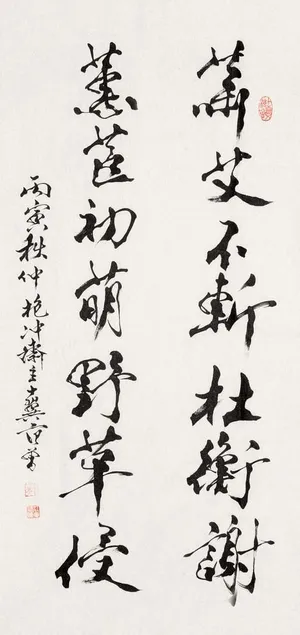 蕭艾不斬杜衡謝
蕙茝初萌野草侵
丙寅秋仲抱冲齋主范曾